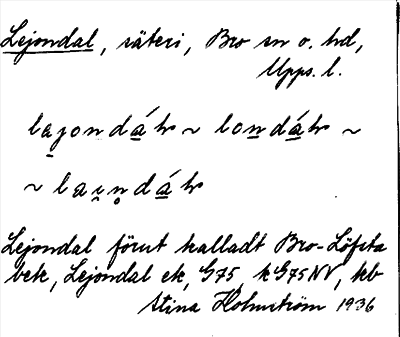 Lejondal, säteri, Bro sn o. hd,
Upps. l.
lajondáƚ ~ londáƚ ~
~ laiṇdáƚ
Lejondal förut kalladt Bro-Löfsta
bek, Lejondal ek, G75, kG75NV, hb
Stina Holmström 1936